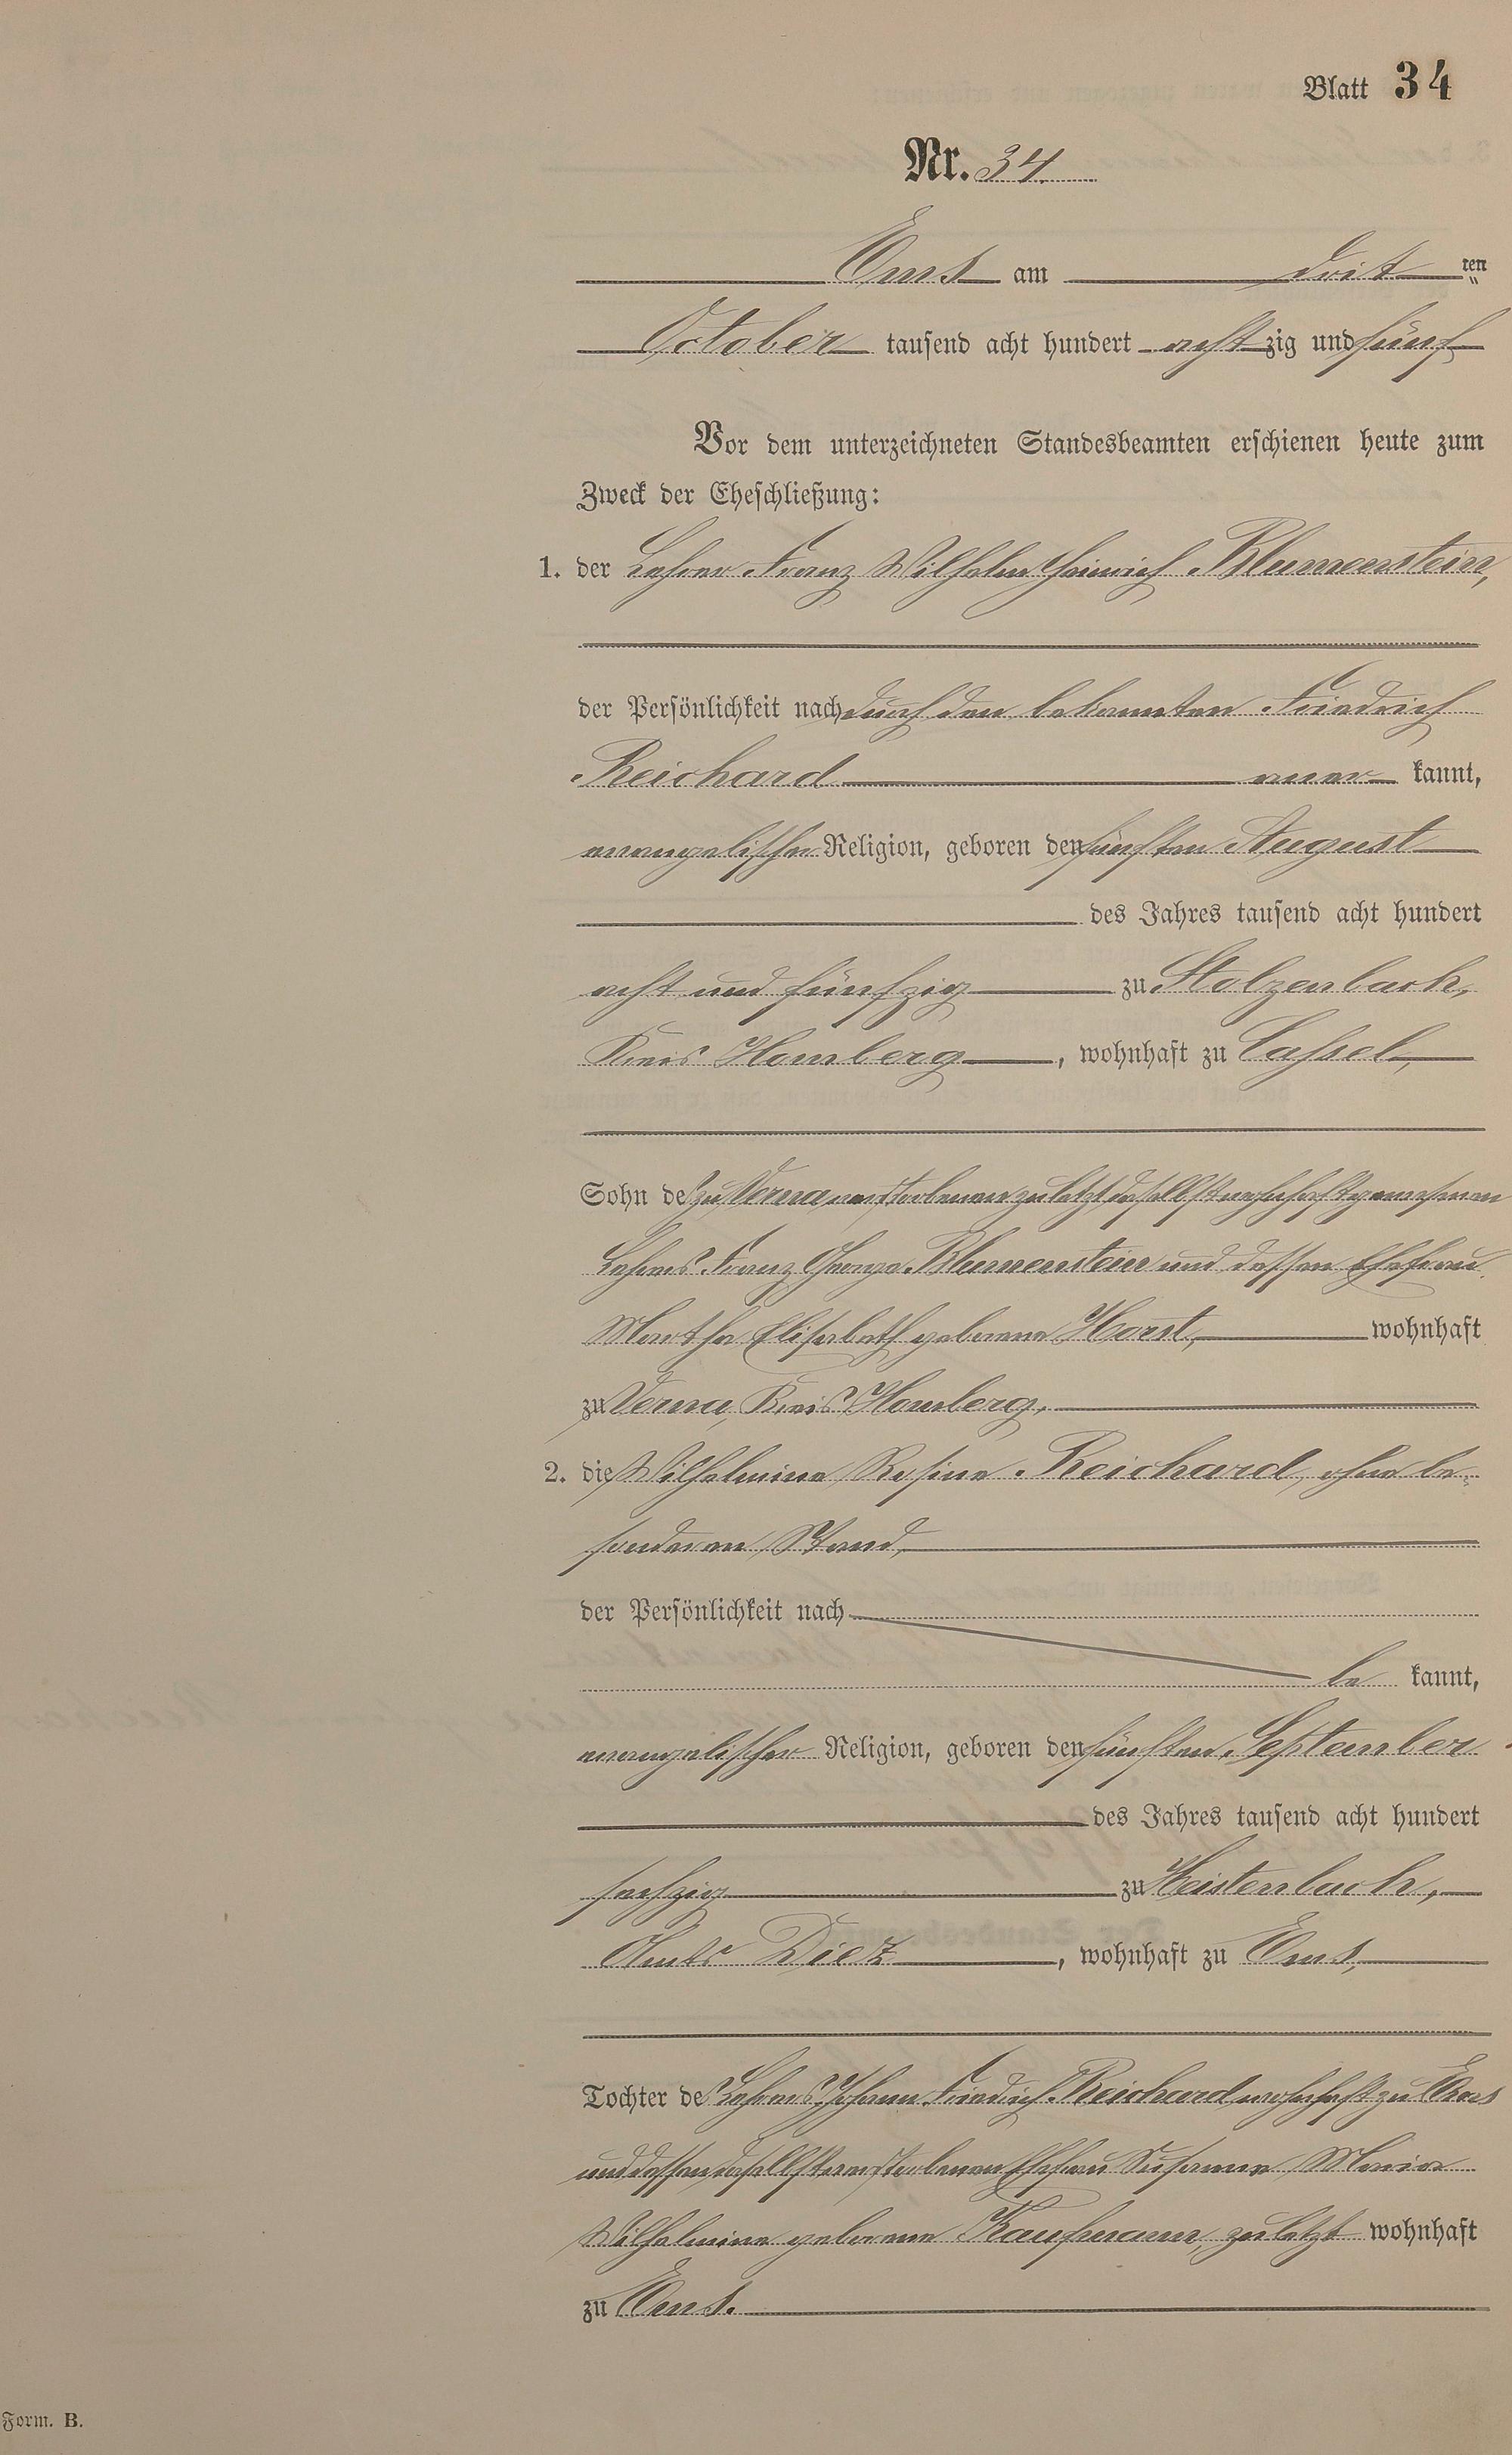 Blatt 34
Nr. 34.
Ems am dritten
October tausend acht hundert achtzig und fünf
Vor dem unterzeichneten Standesbeamten erschienen heute zum
Zweck der Eheschließung:
1. der Lehrer Franz Wilhelm Heinrich Blumenstein,
der Persönlichkeit nach durch den bekannten Friedrich
Reichard aner kannt,
evangelischer Religion, geboren den fünften August
des Jahres tausend acht hundert
acht und fünfzig zu Stolzenbach,
Kreis Homberg, wohnhaft zu Cassel,
Sohn des zu Verna verstorbenen zuletzt daselbst wohnhaft gewesenen
Lehrers Franz George Blumenstein und dessen Ehefrau
Martha Elisabeth geborene Horst, wohnhaft
zu Verna, Kreis Homberg.
2. die Wilhelmine Rosine Reichard, ohne be-
sonderen Stand,
der Persönlichkeit nach
be kannt,
evangelischer Religion, geboren den fünften September
des Jahres tausend acht hundert
sechzig zu Heistenbach,
Amts Diez, wohnhaft zu Ems,
Tochter des Lehrers Johann Friedrich Reichard wohnhaft zu Ems
und dessen daselbst verstorbenen Ehefrau Susanne Maria
Wilhelmine geborene Kaufmann, zuletzt wohnhaft
zu Ems.
Form. B.